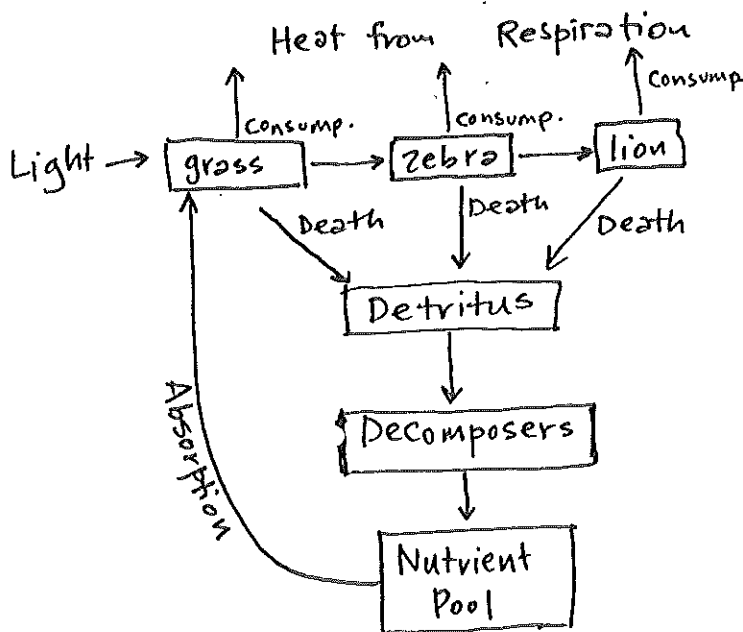 Heat from Respiration
Consump.
Consump.
Consump
Light
grass
zebra
lion
Death
Death
Death
Detritus
Decomposers
Absorption
Nutrient
Pool